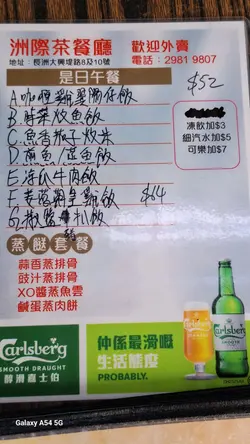 洲際茶餐廳
歡迎外賣
地址：長洲大興堤路8及10號
電話：2981 9807
是日午餐
$52
A.咖喱雞翼腸仔飯
B.鮮菜炆魚飯
C.魚香茄子炆米
D.煎魚/蒸魚飯
E.涼瓜牛肉飯
飯 $64
G.椒鹽 扒飯
凍飲加$3
細汽水加$5
可樂加$7
蒸餸套餐
蒜香蒸排骨
豉汁蒸排骨
XO醬蒸魚雲
鹹蛋蒸肉餅
Carlsberg
SMOOTH DRAUGHT
醇滑嘉士伯
仲係最滑嘅
生活態度
PROBABLY.
Carlsberg
Galaxy A54 5G